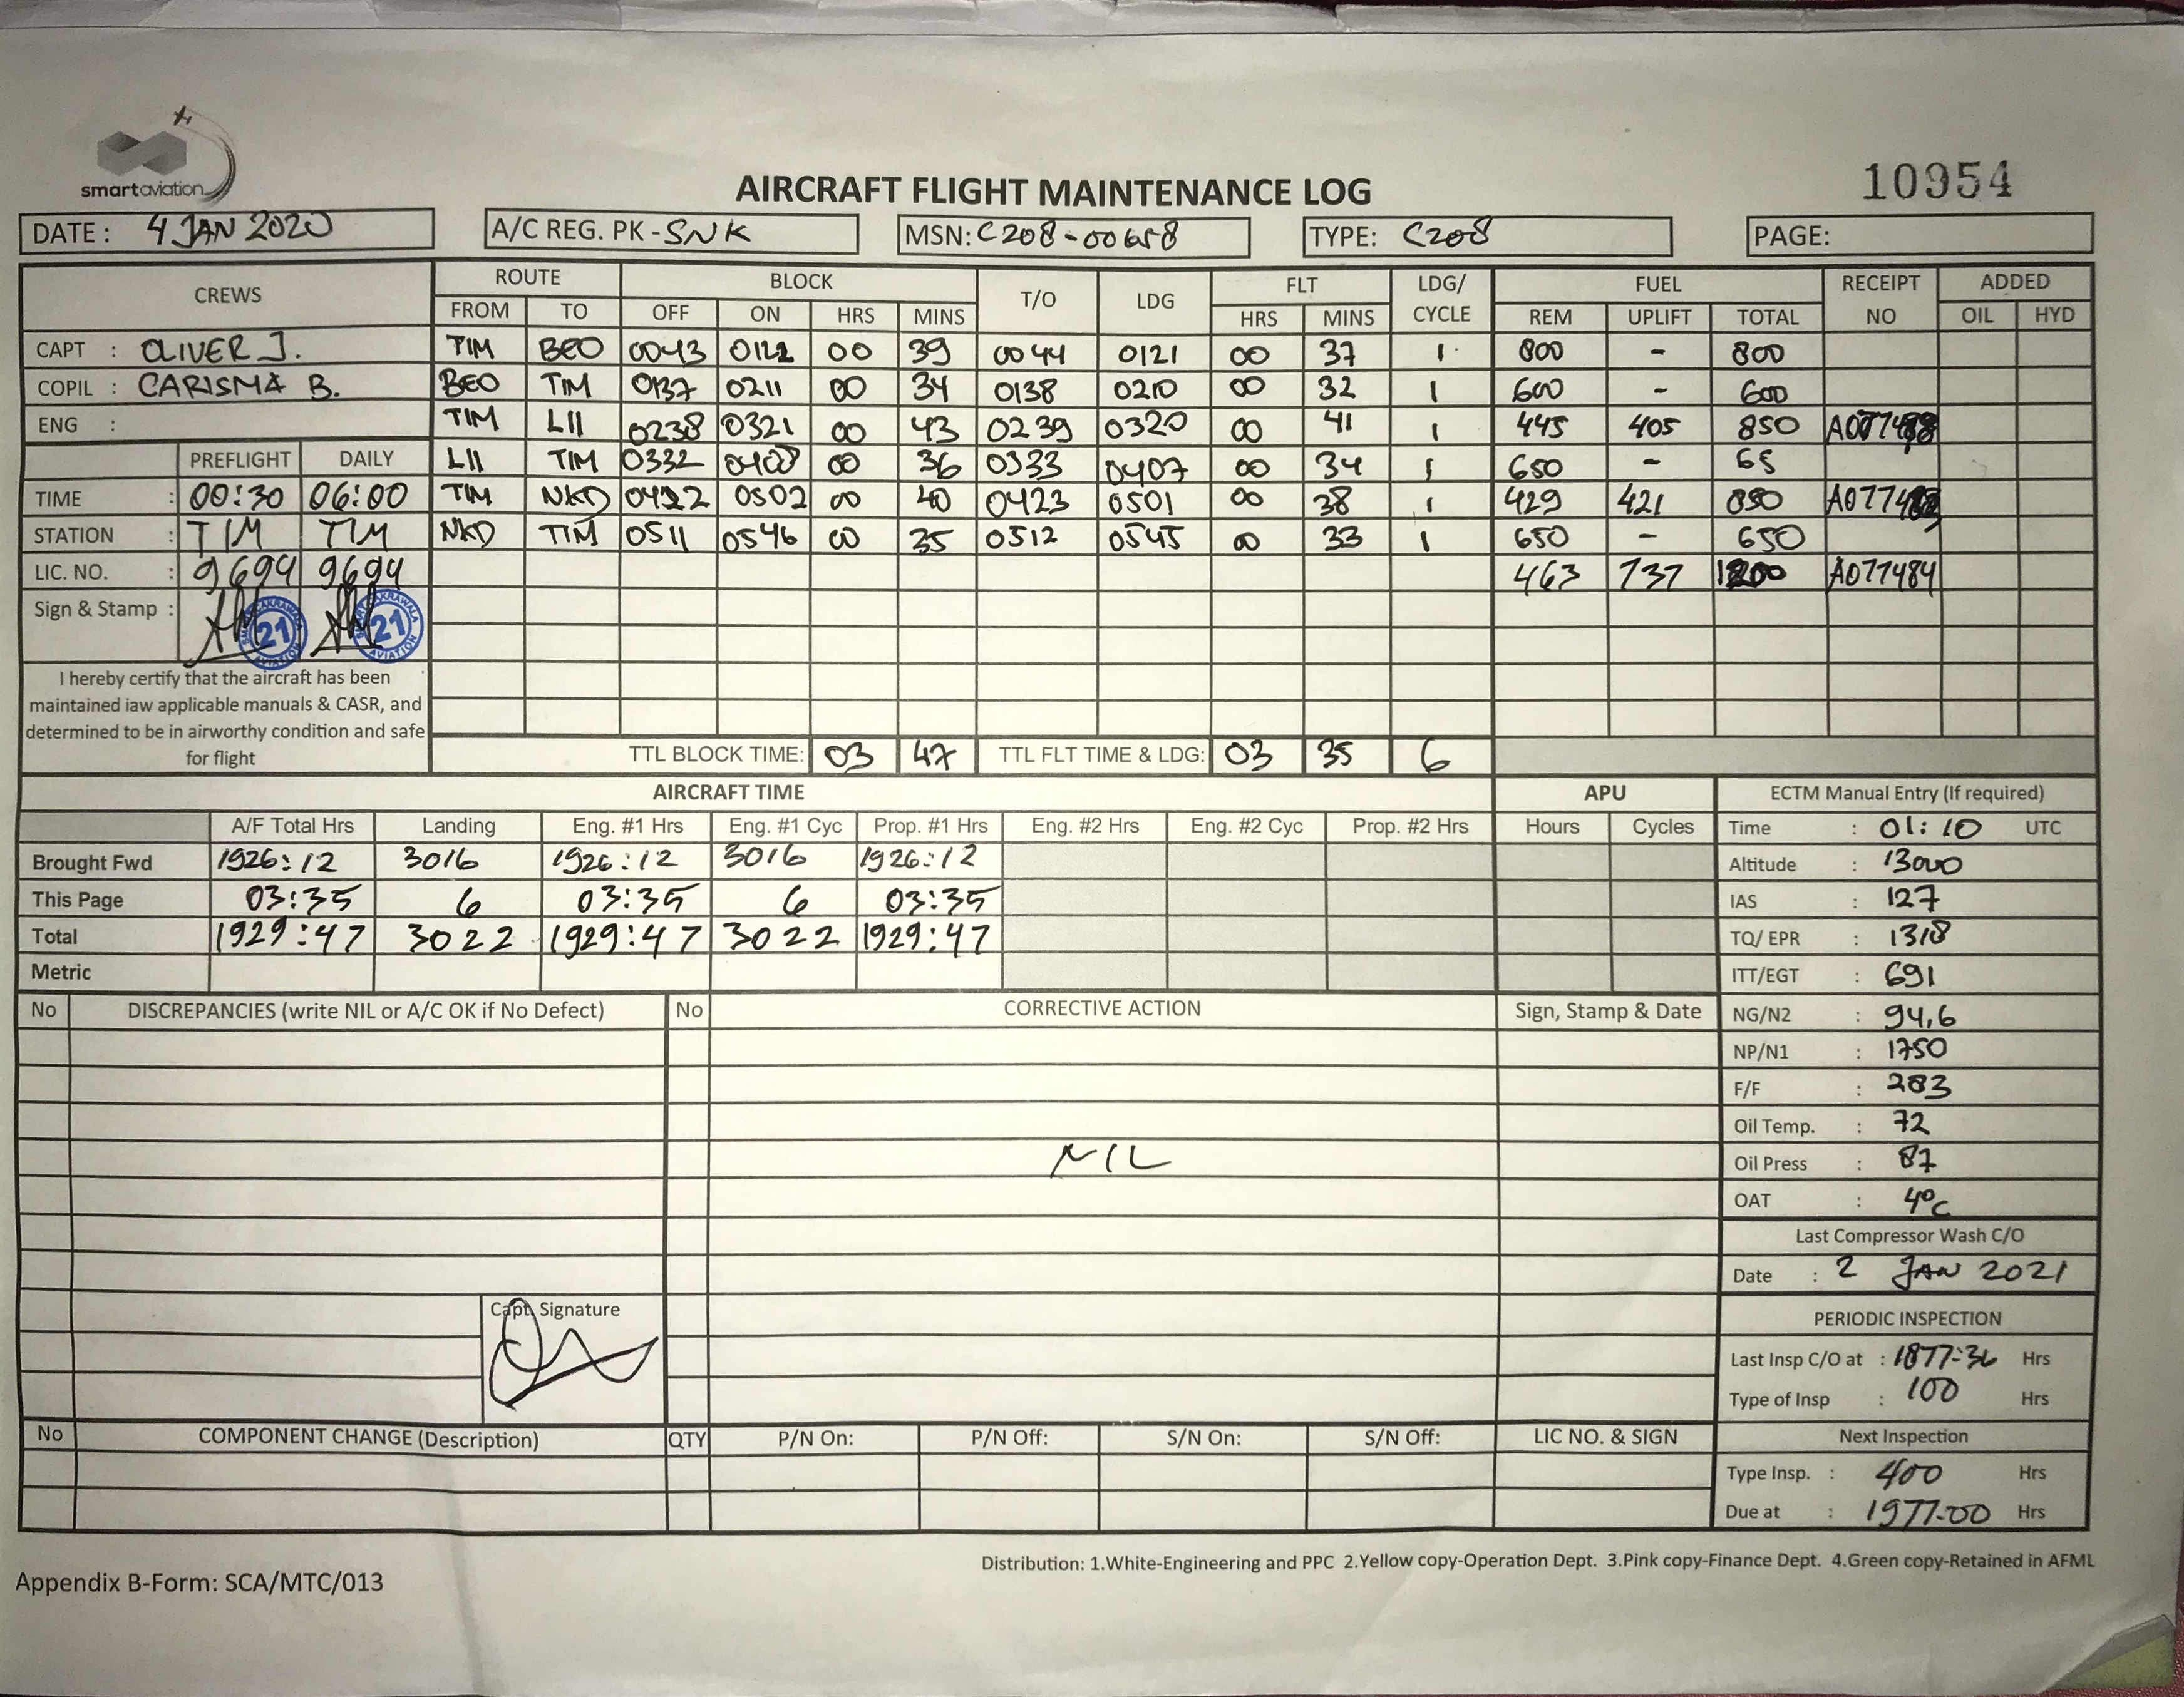 smartaviation
AIRCRAFT FLIGHT MAINTENANCE LOG
10954
DATE : 4 JAN 2020
A/C REG. PK - SNK
MSN: C208-00658
TYPE: C208
PAGE:
CREWS ROUTE BLOCK T/O LDG FLT LDG/ CYCLE FUEL RECEIPT NO ADDED
FROM TO OFF ON HRS MINS HRS MINS REM UPLIFT TOTAL OIL HYD
CAPT : OLIVER J. TIM BEO 0043 0122 00 39 0044 0121 00 37 1 800 - 800
COPIL : CARISMA B. BEO TIM 0137 0211 00 34 0138 0210 00 32 1 600 - 600
ENG : TIM LII 0238 0321 00 43 0239 0320 00 41 1 445 405 850
PREFLIGHT DAILY LII TIM 0332 0408 00 36 0333 0407 00 34 1 650 - 65
TIME : 00:30 06:00 TIM NKD 0422 0502 00 40 0423 0501 00 38 1 429 421 850
STATION : TIM TIM NKD TIM 0511 0546 00 35 0512 0545 00 33 1 650 - 650
LIC. NO. : 9694 9694 463 737 1200 A077484
Sign & Stamp : 21 21
I hereby certify that the aircraft has been
maintained iaw applicable manuals & CASR, and
determined to be in airworthy condition and safe
for flight
TTL BLOCK TIME: 03 47 TTL FLT TIME & LDG: 03 35 6
AIRCRAFT TIME APU
A/F Total Hrs Landing Eng. #1 Hrs Eng. #1 Cyc Prop. #1 Hrs Eng. #2 Hrs Eng. #2 Cyc Prop. #2 Hrs Hours Cycles
Brought Fwd 1926:12 3016 1926:12 3016 1926:12
This Page 03:35 6 03:35 6 03:35
Total 1929:47 3022 1929:47 3022 1929:47
Metric
ECTM Manual Entry (If required)
Time : 01:10 UTC
Altitude : 13000
IAS : 127
TQ/ EPR : 1318
ITT/EGT : 691
NG/N2 : 94,6
NP/N1 : 1750
F/F : 283
Oil Temp. : 72
Oil Press : 87
OAT : 4°C
Last Compressor Wash C/O
Date : 2 JAN 2021
PERIODIC INSPECTION
Last Insp C/O at : 1877:36 Hrs
Type of Insp : 100 Hrs
Next Inspection
Type Insp. : 400 Hrs
Due at : 1977.00 Hrs
No DISCREPANCIES (write NIL or A/C OK if No Defect) No CORRECTIVE ACTION Sign, Stamp & Date
NIL
Capt. Signature
No COMPONENT CHANGE (Description) QTY P/N On: P/N Off: S/N On: S/N Off: LIC NO. & SIGN
Distribution: 1.White-Engineering and PPC 2.Yellow copy-Operation Dept. 3.Pink copy-Finance Dept. 4.Green copy-Retained in AFML
Appendix B-Form: SCA/MTC/013